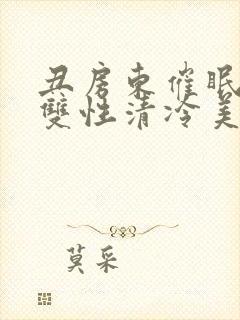 丑房东催眠
雙性清冷美
莫采